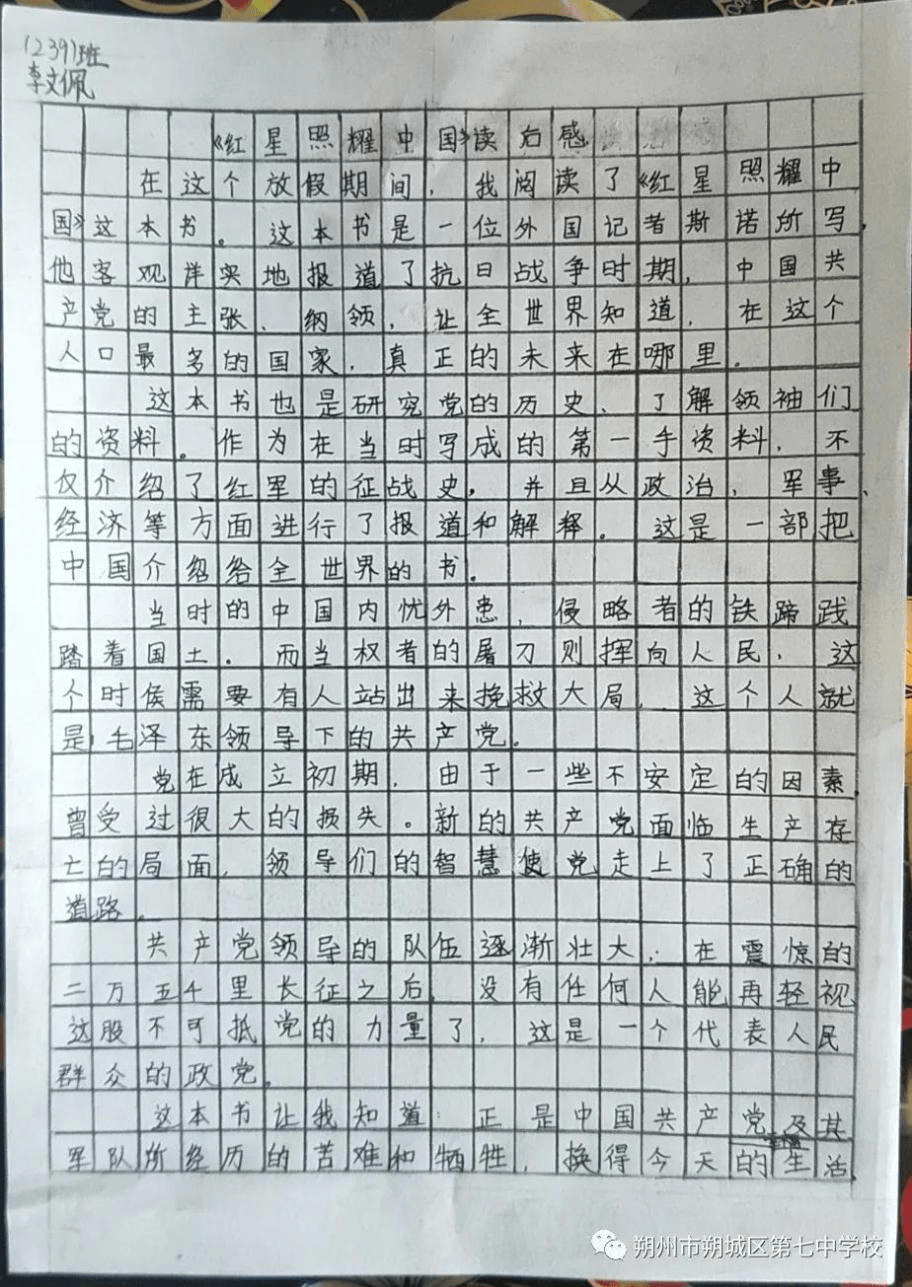 (239)班
李文佩
《红星照耀中国》读后感
在这个放假期间，我阅读了《红星照耀中
国》这本书。这本书是一位外国记者斯诺所写，
他客观详实地报道了抗日战争时期，中国共
产党的主张、纲领，让全世界知道，在这个
人口最多的国家，真正的未来在哪里。
这本书也是研究党的历史、了解领袖们
的资料。作为在当时写成的第一手资料，不
仅介绍了红军的征战史，并且从政治、军事、
经济等方面进行了报道和解释。这是一部把
中国介绍给全世界的书。
当时的中国内忧外患，侵略者的铁蹄践
踏着国土。而当权者的屠刀则挥向人民，这
个时侯需要有人站出来挽救大局，这个人就
是毛泽东领导下的共产党。
党在成立初期，由于一些不安定的因素，
曾受过很大的损失。新的共产党面临生产存
亡的局面，领导们的智慧使党走上了正确的
道路。
共产党领导的队伍逐渐壮大，在震惊的
二万五千里长征之后，没有任何人能再轻视
这股不可抵党的力量了，这是一个代表人民
群众的政党。
这本书让我知道：正是中国共产党及其
军队所经历的苦难和牺牲，换得今天的生活
朔州市朔城区第七中学校